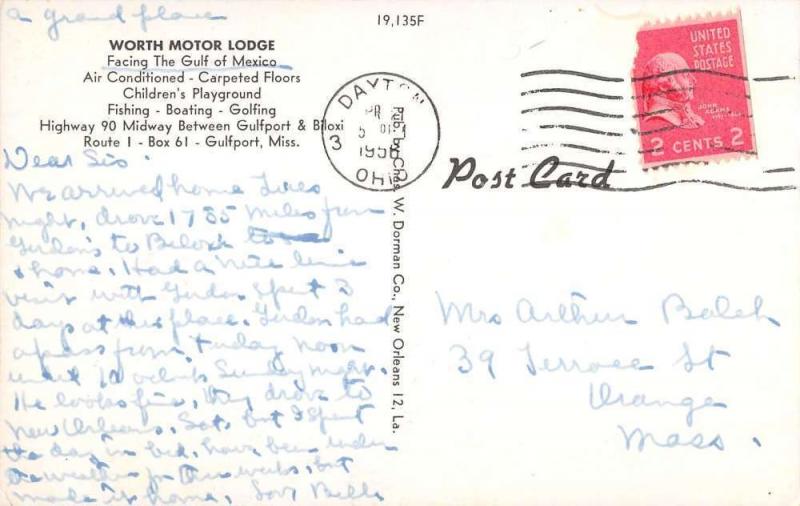 a grand place
19,135F
WORTH MOTOR LODGE
Facing The Gulf of Mexico
Air Conditioned - Carpeted Floors
Children's Playground
Fishing - Boating - Golfing
Highway 90 Midway Between Gulfport & Biloxi
Route 1 - Box 61 - Gulfport, Miss.
Dear Sis.
We arrived home Tues
night, drove 1735 miles from
Gordon's to Biloxi
& home. Had a nice
visit with Gordon spent 3
days at this place. Gordon had
a pass from Friday noon
until 12 oclock Sunday night.
He looks fine, they drove to
New Orleans, Sat. but I spent
the day in bed, have been under
the weather for three weeks, but
made it home, Love Belle
Pub. by Chas. W. Dorman Co., New Orleans 12, La.
DAYTON
3
OHIO
Post Card
UNITED
STATES
POSTAGE
JOHN
ADAMS
2 CENTS 2
Mrs Arthur Balch
39 Terrace St
Orange
Mass.